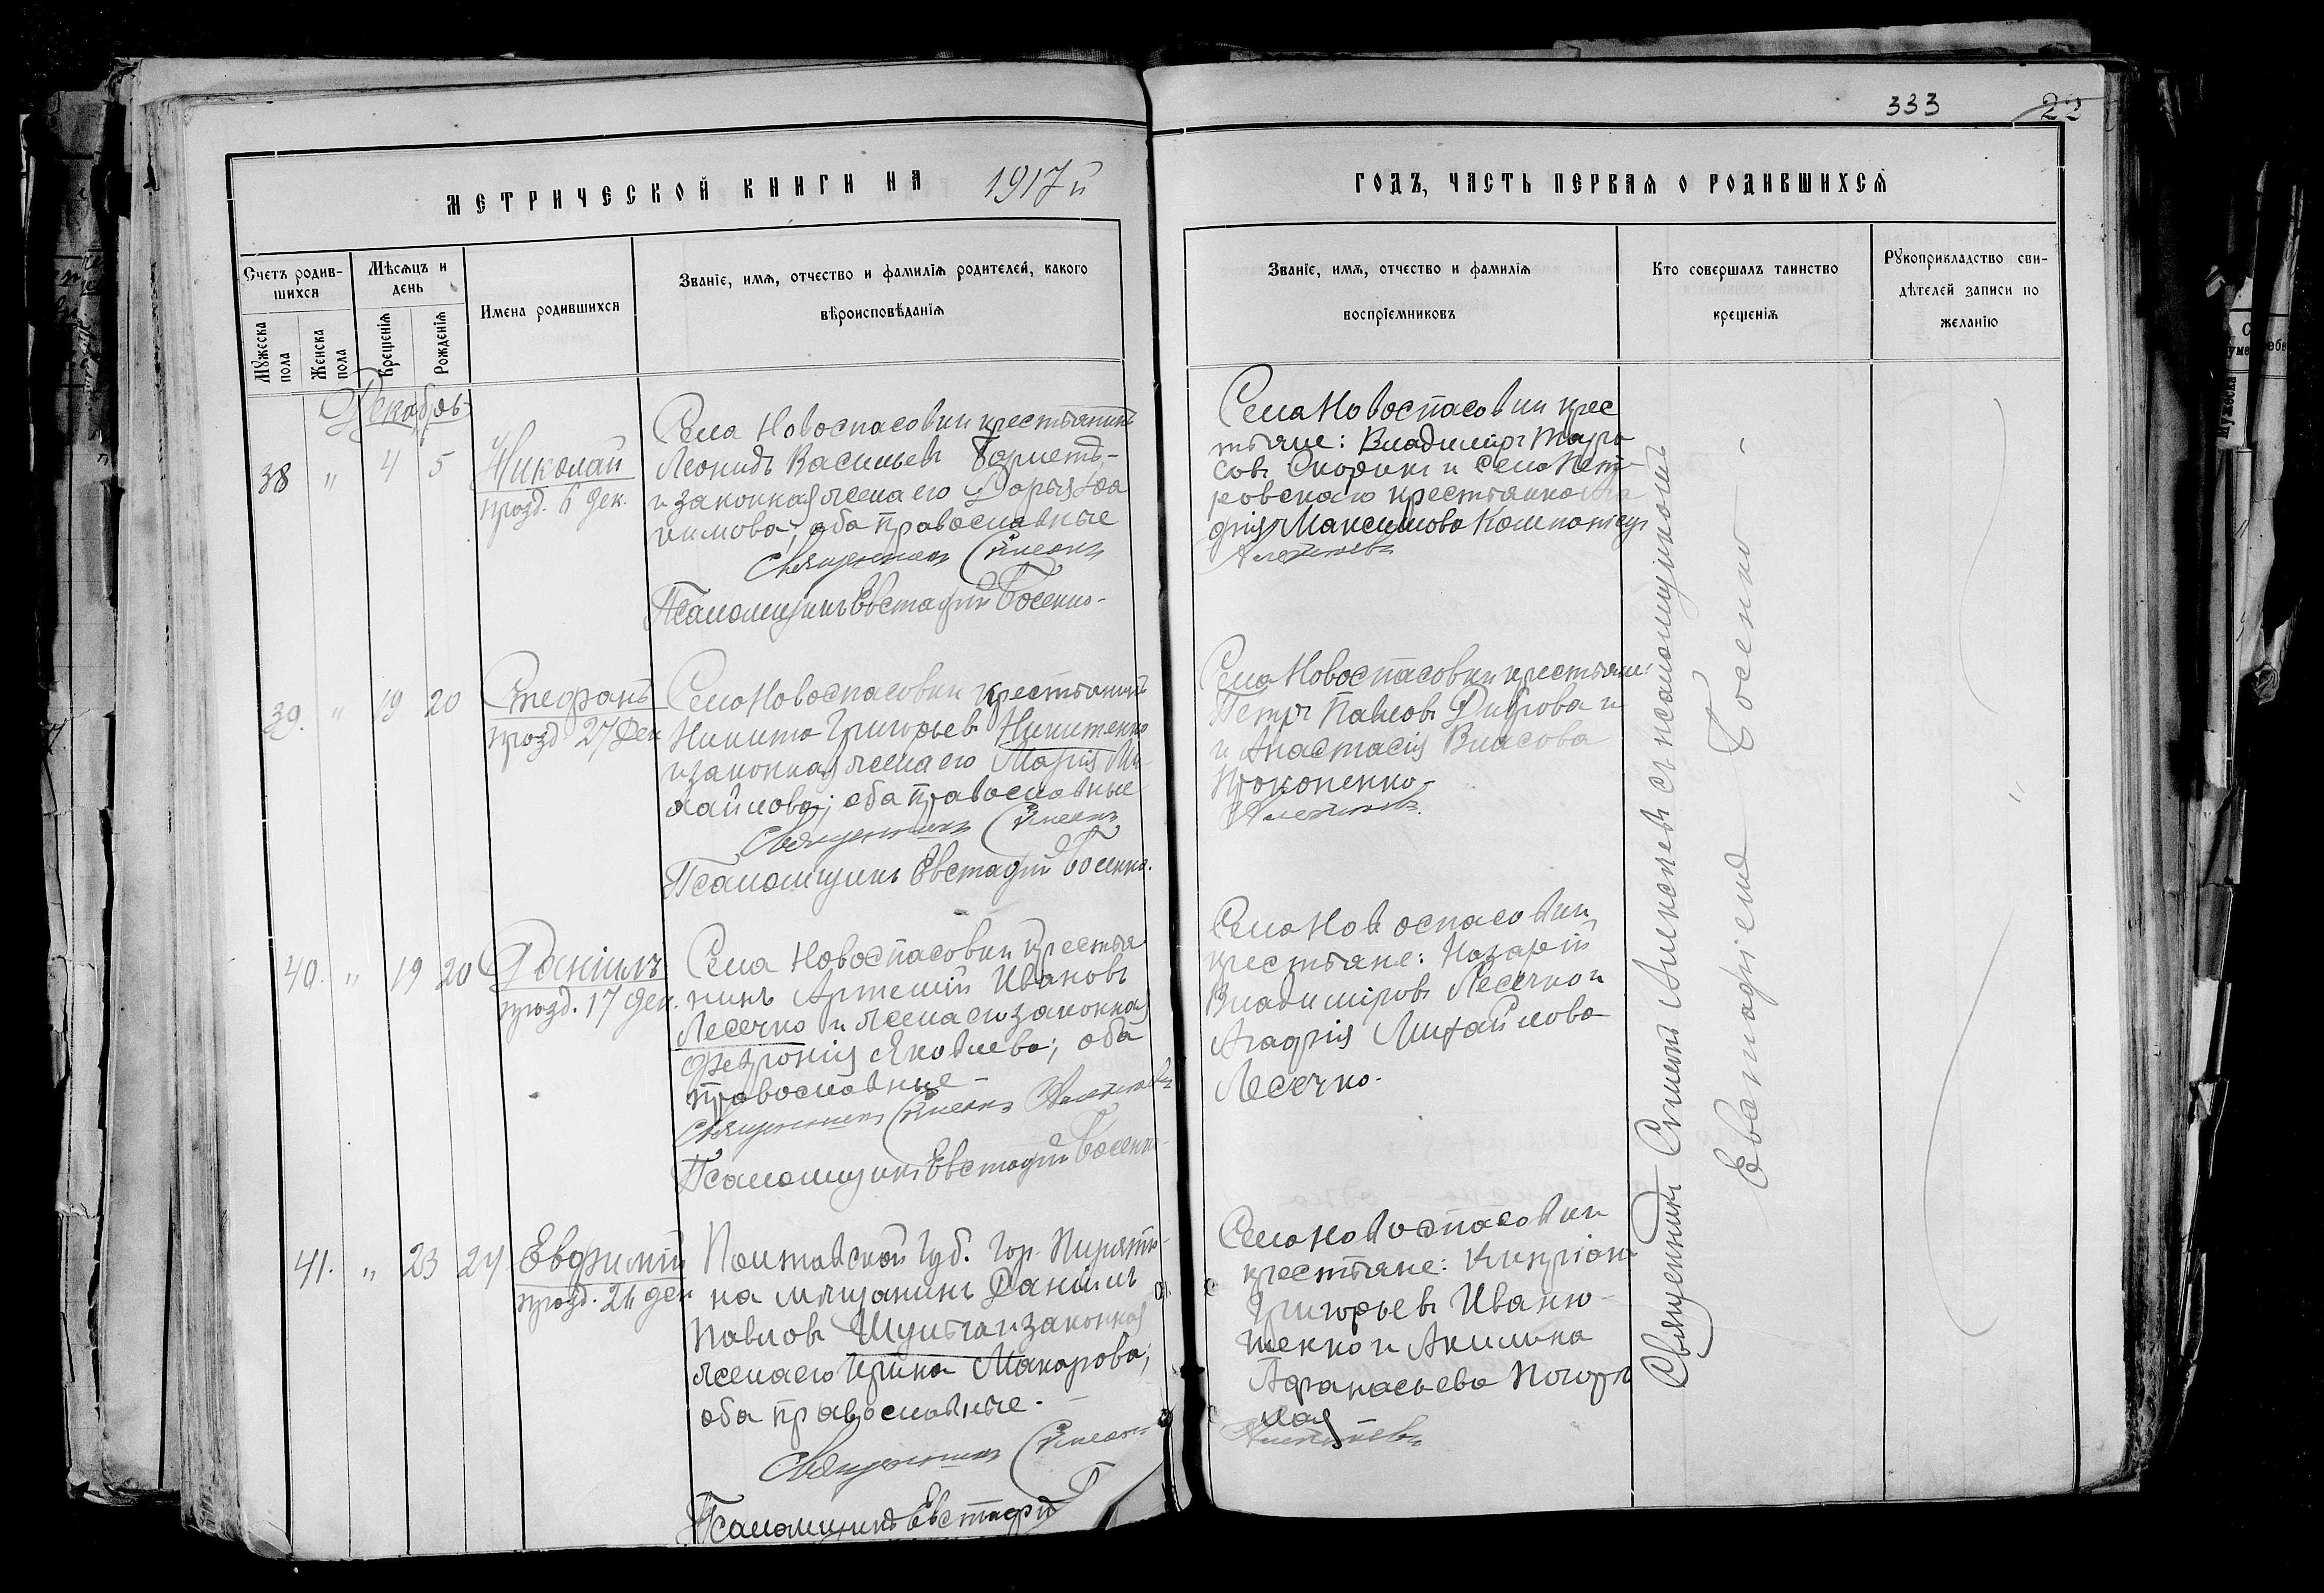 333
22
МЕТРИЧЕСКОЙ КНИГИ НА 1917й
ГОДЪ, ЧАСТЬ ПЕРВАЯ О РОДИВШИХСЯ
Счетъ родив-
шихся
Мужеска
пола
Женска
пола
Мѣсяцъ и
день
Крещенія
Рожденія
Имена родившихся
Званіе, имя, отчество и фамилія родителей, какого
вѣроисповѣданія
Званіе, имя, отчество и фамилія
воспріемниковъ
Кто совершалъ таинство
крещенія
Рукоприкладство сви-
дѣтелей записи по
желанію
Декабрь
38 " 4 5
Николай
празд. 6 дек.
Села Новоспасовки крестьянинъ
Леонидъ Васильевъ
и законная жена его Дарья Іоа
кимова; оба православные
Священникъ Симеонъ
Псаломщикъ Евстафій Босенко-
Села Новоспасовки крес
тьяне: Владиміръ Тара
совъ Скорикъ и села Пет
ровскаго крестьянка
Максимова Компаніец
Алексѣевъ
39. " 19 20
Стефанъ
празд 27 Дек
Села Новоспасовки крестьянинъ
Никита Григорьевъ Никитенко
и законная жена его Марія Ми
хайлова; оба православные
Священникъ Симеонъ
Псаломщикъ Евстафій Босенко.
Села Новоспасовки крестьяне:
Петръ Павловъ Диброва и
и Анастасія Власова
Прокопенко-
Алексѣевъ.
40. " 19 20
Даніилъ
празд. 17 дек.
Села Новоспасовки крестья
нинъ Артемій Ивановъ
Лесечко и жена его законная
Февронія Яковлева; оба
православные-
Священникъ Симеонъ Алексѣевъ
Псаломщикъ Евстафій Босенко
Села Новоспасовки
крестьяне: Назарій
Владиміровъ Лесечко и
Агафія Михайлова
Лесечко.
41. " 23 24
Евфимій
празд. 26 дек
Полтавской губ. гор. Пиряти-
на мѣщанинъ Даніилъ
Павловъ Шульга и законная
жена его Ирина Макарова;
оба православные.-
Священникъ Симеонъ
Псаломщикъ Евстафій
Села Новоспасовки
крестьяне: Кипріанъ
Григорьевъ Иваню-
шенко и Акилина
Афанасьева Погорѣ
лая
Алексѣевъ
Священникъ Симеонъ Алексѣевъ съ псаломщикомъ
Евстафіемъ Босенко -